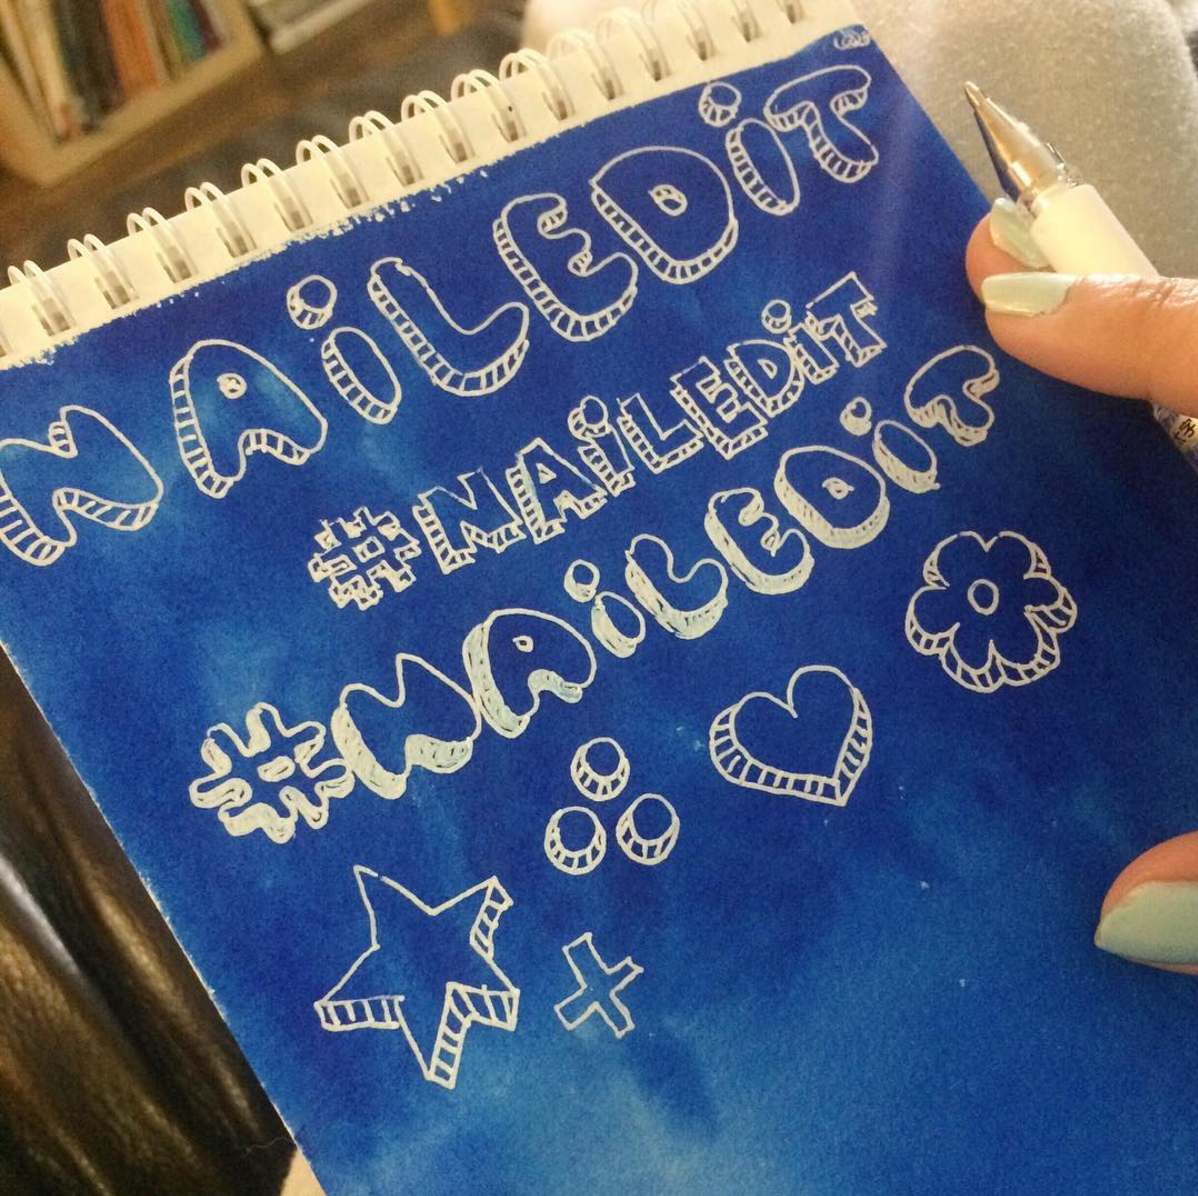 NAiLEDiT
#NAiLEDiT
#NAiLEDiT